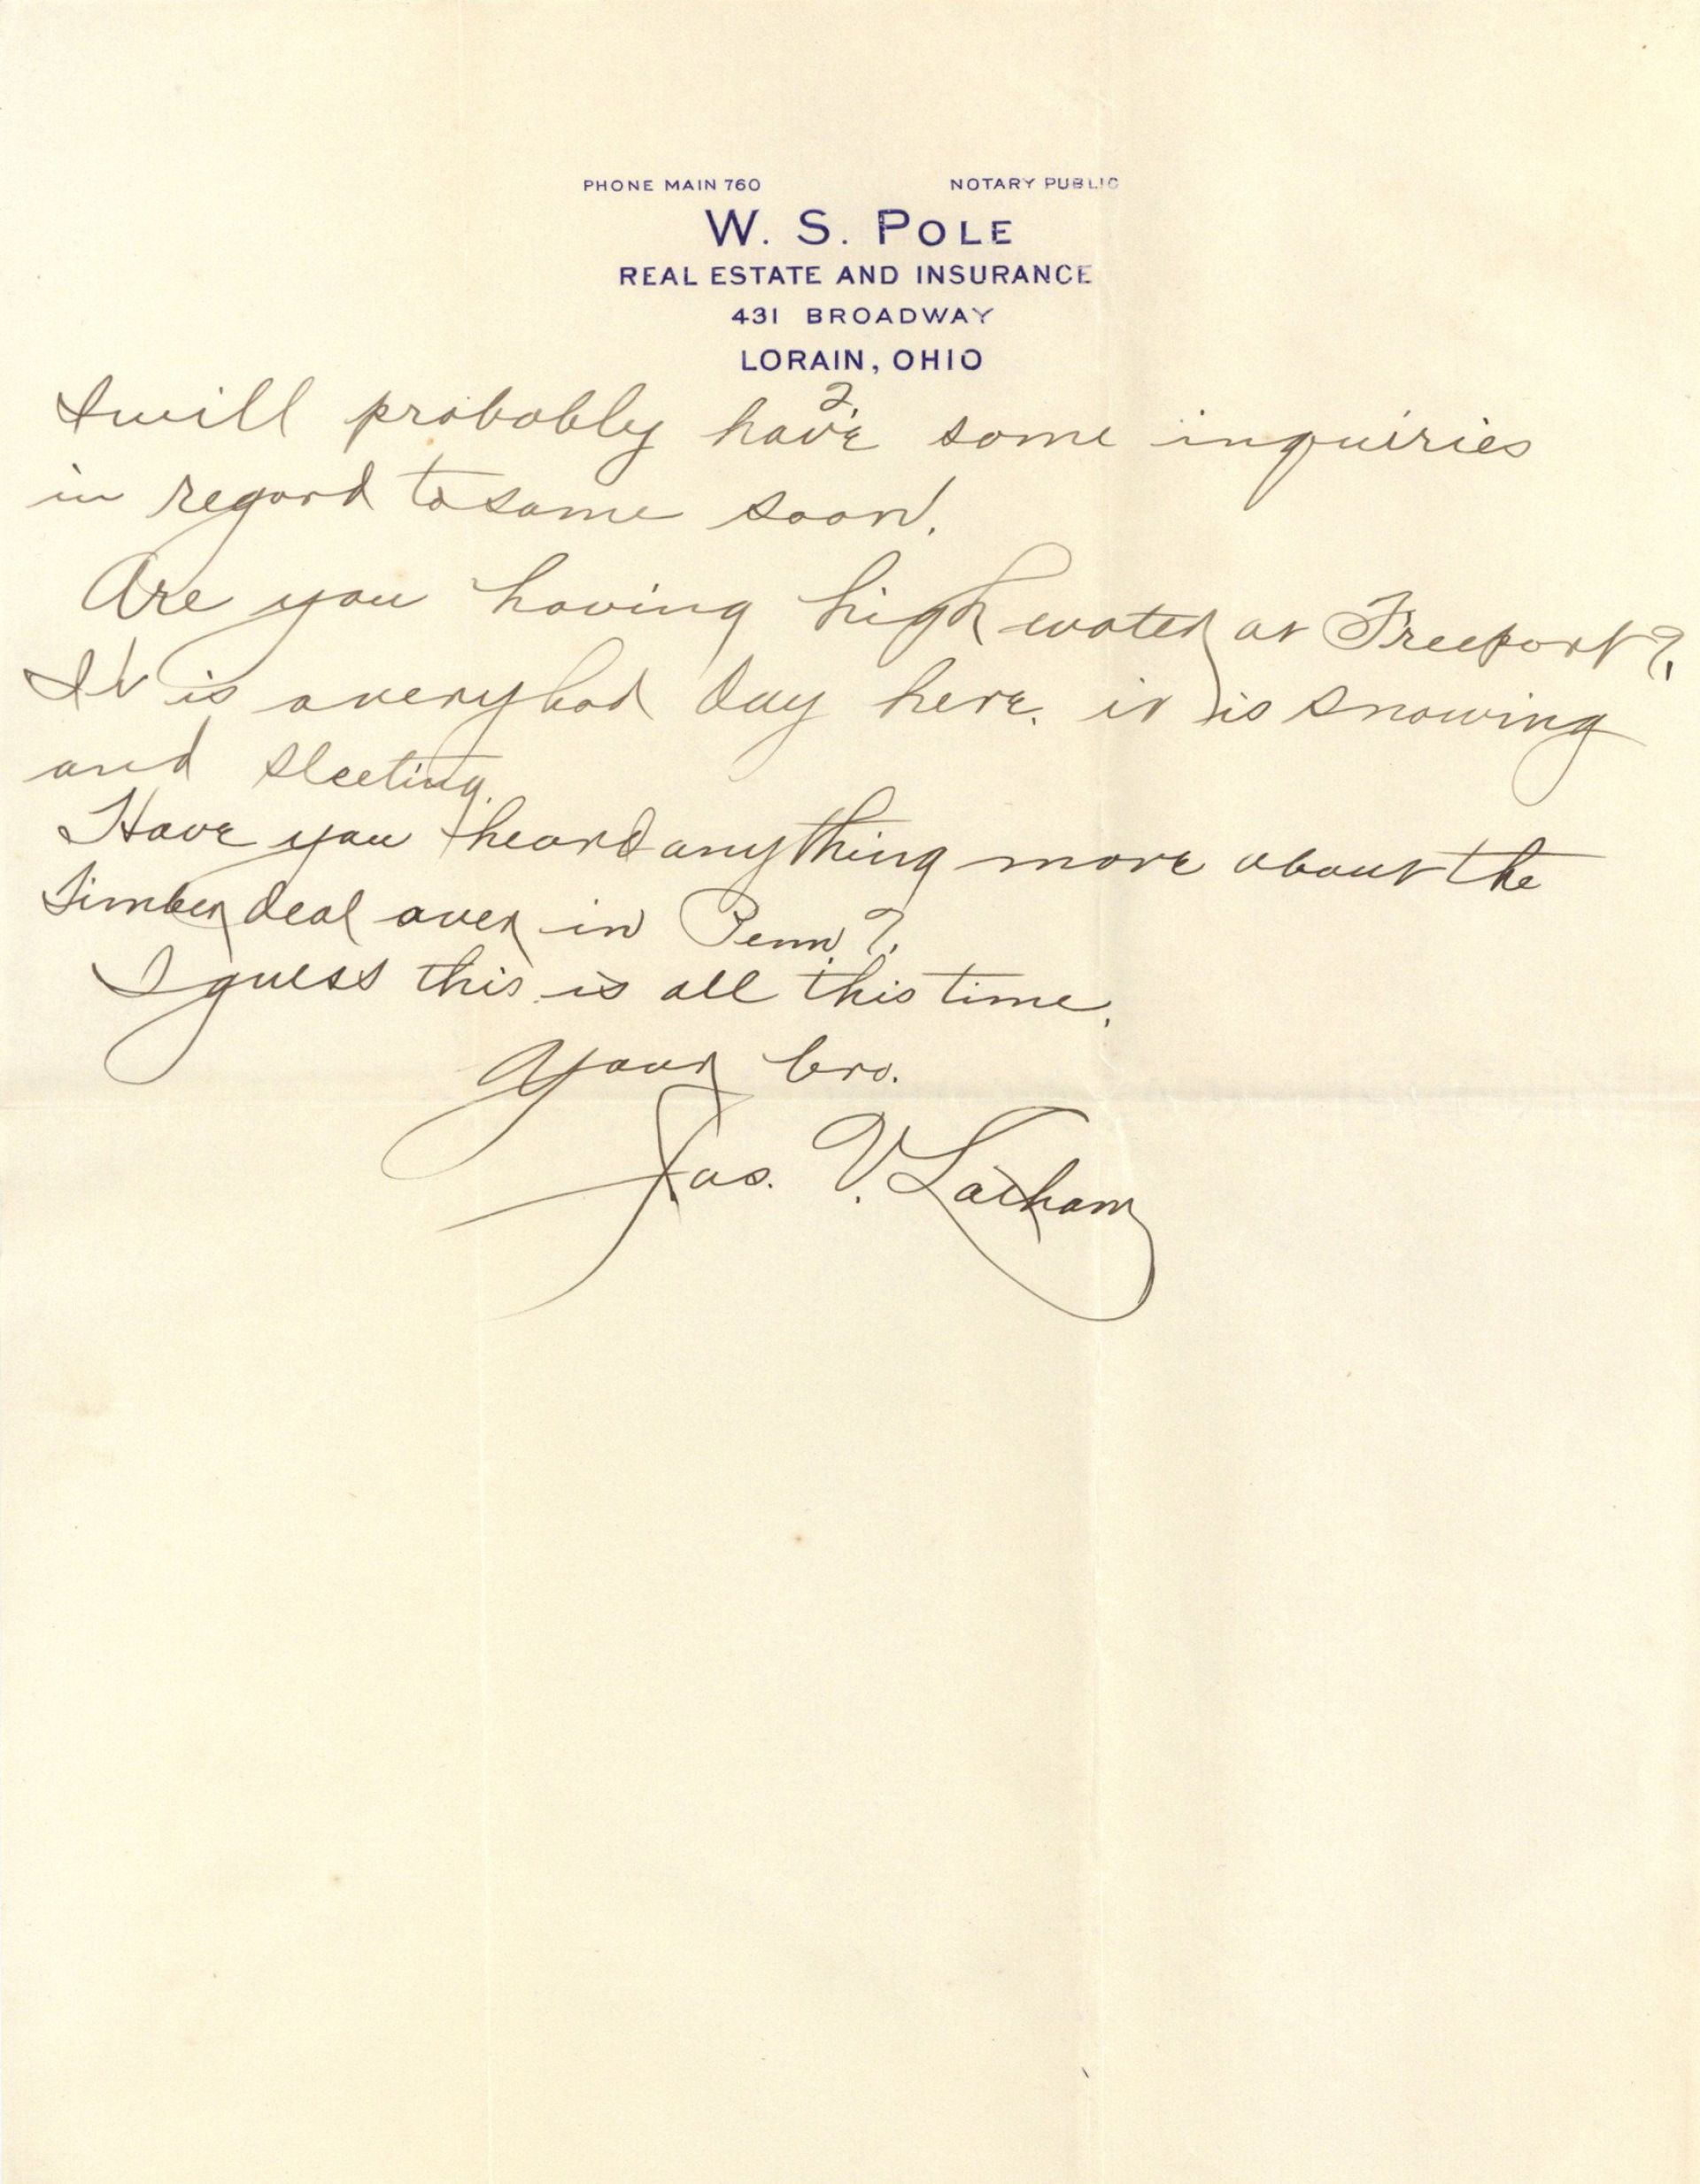 PHONE MAIN 760 NOTARY PUBLIC
W. S. POLE
REAL ESTATE AND INSURANCE
431 BROADWAY
LORAIN, OHIO
2.
I will probably have some inquiries
in regard to same soon.
Are you having high water at Freeport?
It is a very bad day here. it is snowing
and sleeting.
Have you heard anything more about the
timber deal over in Penn.?
I guess this is all this time.
Your bro.
Jas. V. Latham